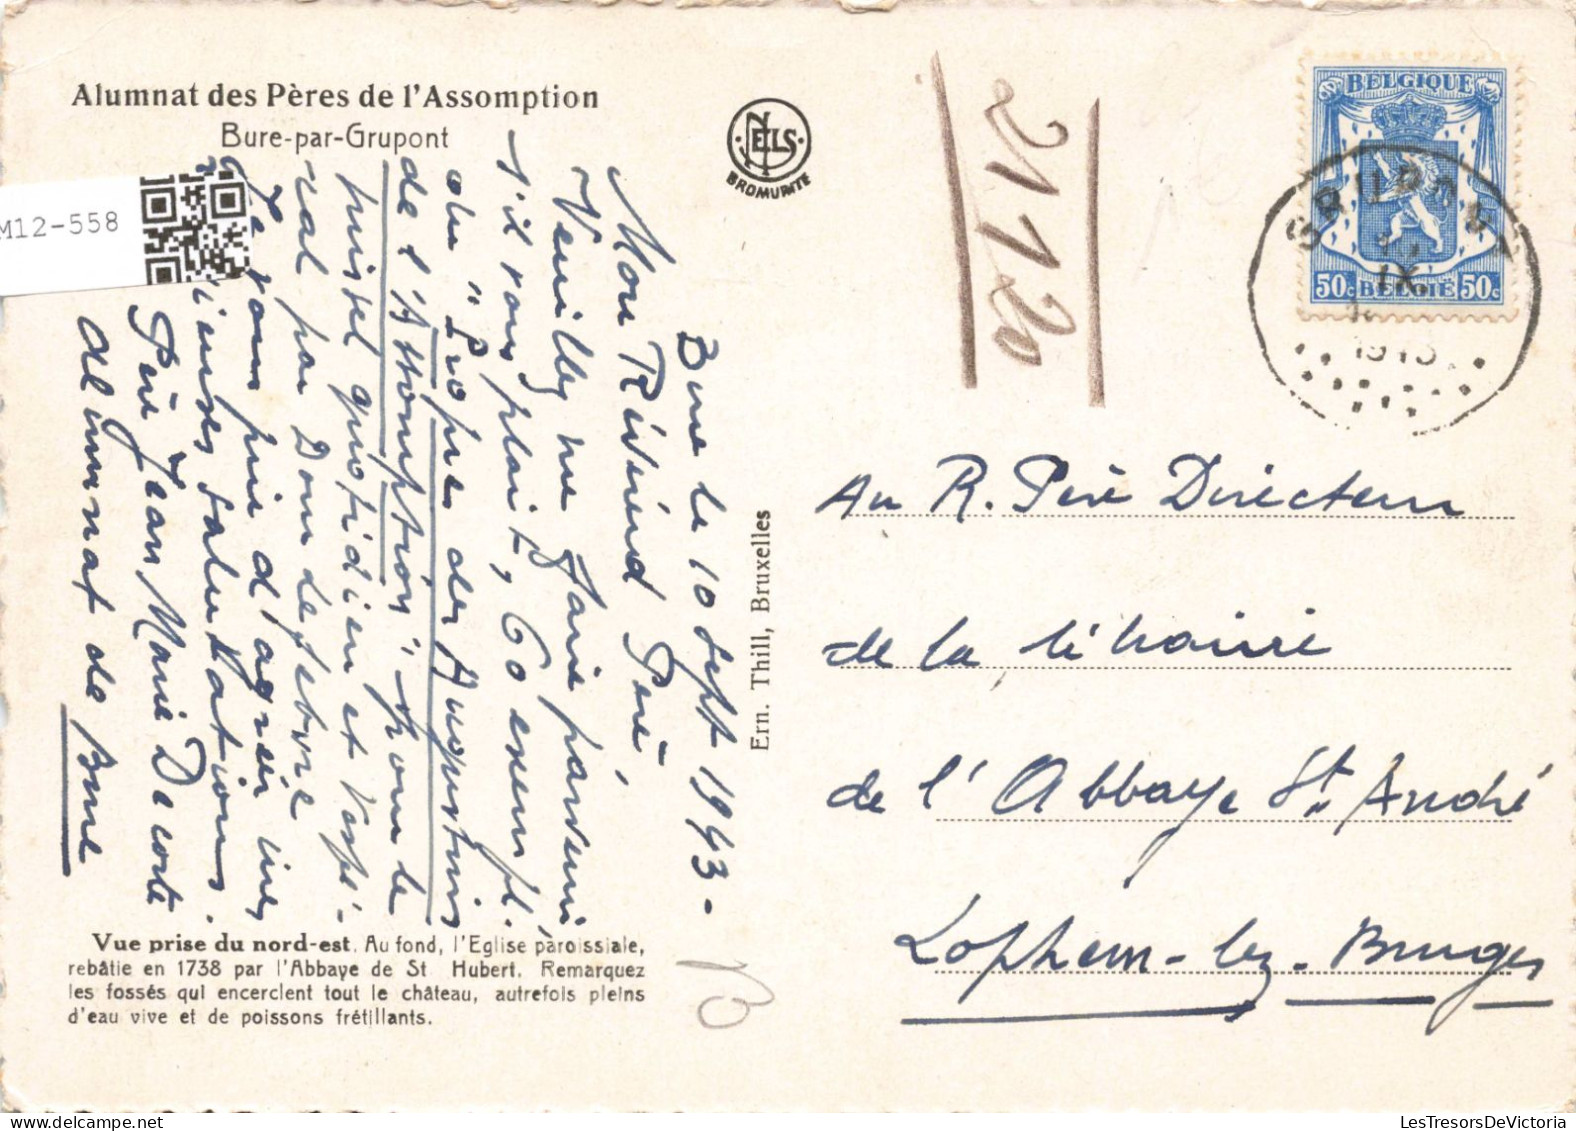 Alumnat des Pères de l'Assomption
Bure-par-Grupont
M12-558
NELS
BROMURITE
21120
BELGIQUE
50c BELGIË 50c
GRUPONT
IX.
Bure le 10 Sept 1943-
Mon Révérend Père,
Veuillez me faire parvenir,
s'il vous plait, 60 exempl.
du "Propre des Augustins
de l'Assomption" pour le
missel quotidien et vespé-
ral par Dom Lefebvre
Je vous prie d'agréer mes
salutations.
Père Jean Marie
Alumnat de Bure
Ern. Thill, Bruxelles
Au R. Père Directeur
de la librairie
de l'Abbaye St. André
Lophem-lez-Bruges
Vue prise du nord-est. Au fond, l'Eglise paroissiale,
rebâtie en 1738 par l'Abbaye de St Hubert. Remarquez
les fossés qui encerclent tout le château, autrefois pleins
d'eau vive et de poissons frétillants.
LesTresorsDeVictoria.com